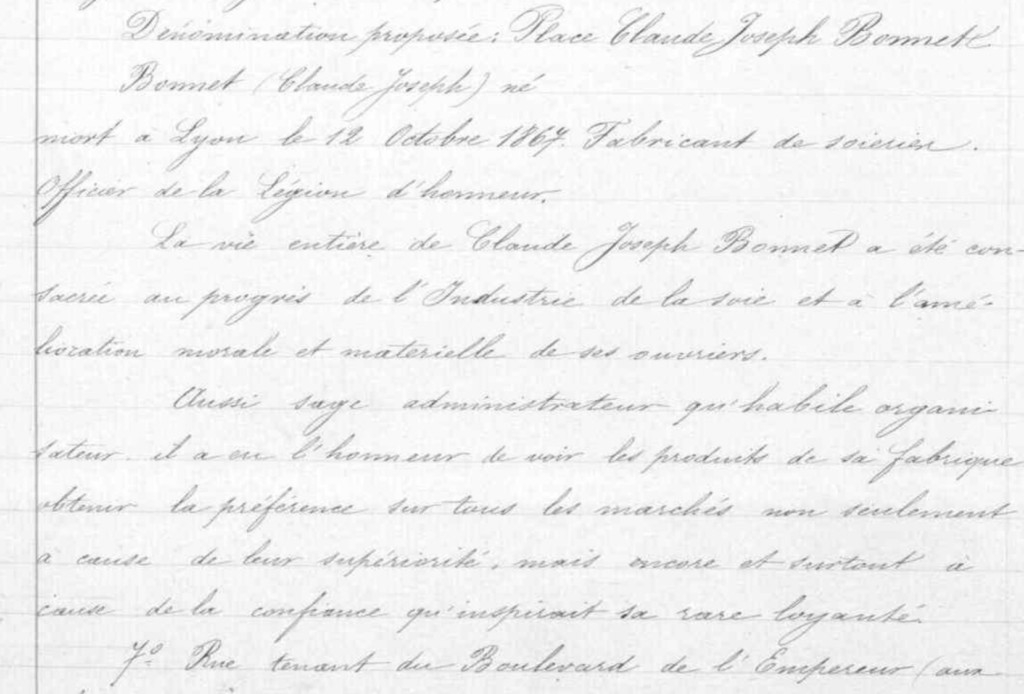 Dénomination proposée: Place Claude Joseph Bonnet
Bonnet (Claude Joseph) né
mort a Lyon le 12 Octobre 1867. Fabricant de soieries.
Officier de la Légion d'honneur.
La vie entière de Claude Joseph Bonnet a été con-
sacrée au progrès de l'Industrie de la soie et à l'amé-
lioration morale et matérielle de ses ouvriers.
Aussi sage administrateur qu'habile organi
sateur. il a eu l'honneur de voir les produits de sa fabrique
obtenir la préférence sur tous les marchés non seulement
à cause de leur supériorité, mais encore et surtout à
cause de la confiance qu'inspirait sa rare loyauté.
7º Rue tenant du Boulevard de l'Empereur (aux